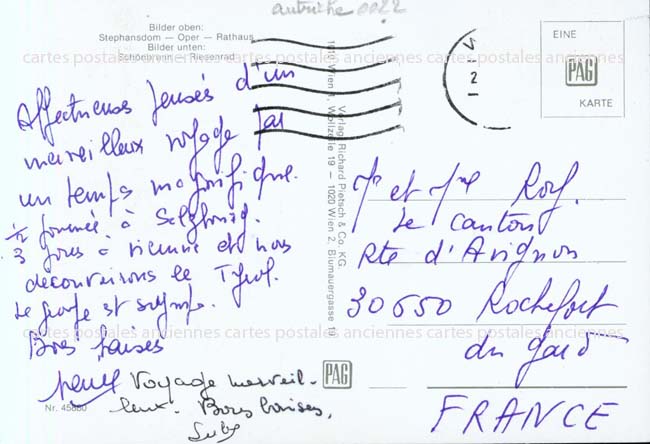 autriche 0022
Bilder oben:
Stephansdom — Oper — Rathaus
Bilder unten:
Schönbrunn — Riesenrad
cartes postales anciennes cartes postales anciennes cartes postales anciennes
Affectueuses pensés d'un
merveilleux voyage par
un temps magnifique.
1/2 journée à Salzbourg.
3 jours à Vienne et nous
découvrirons le Tyrol.
Le groupe est sympa.
Bons baises
Voyage merveil-
leux. Bons baises,
Nr. 45880
Verlag Richard Pietsch & Co. KG
1010 Wien 1, Wollzeile 19 — 1020 Wien 2, Blumauergasse 19
PAG
V
2
EINE
PAG
KARTE
Mr et Mme Roy.
Le Canton
Rte d'Avignon
30650 Rochefort
du gard
FRANCE
cartes postales anciennes cartes postales anciennes cartes postales anciennes